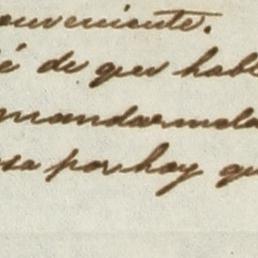 onveniente.
é de que habl
mandarmela
sa por hoy qu